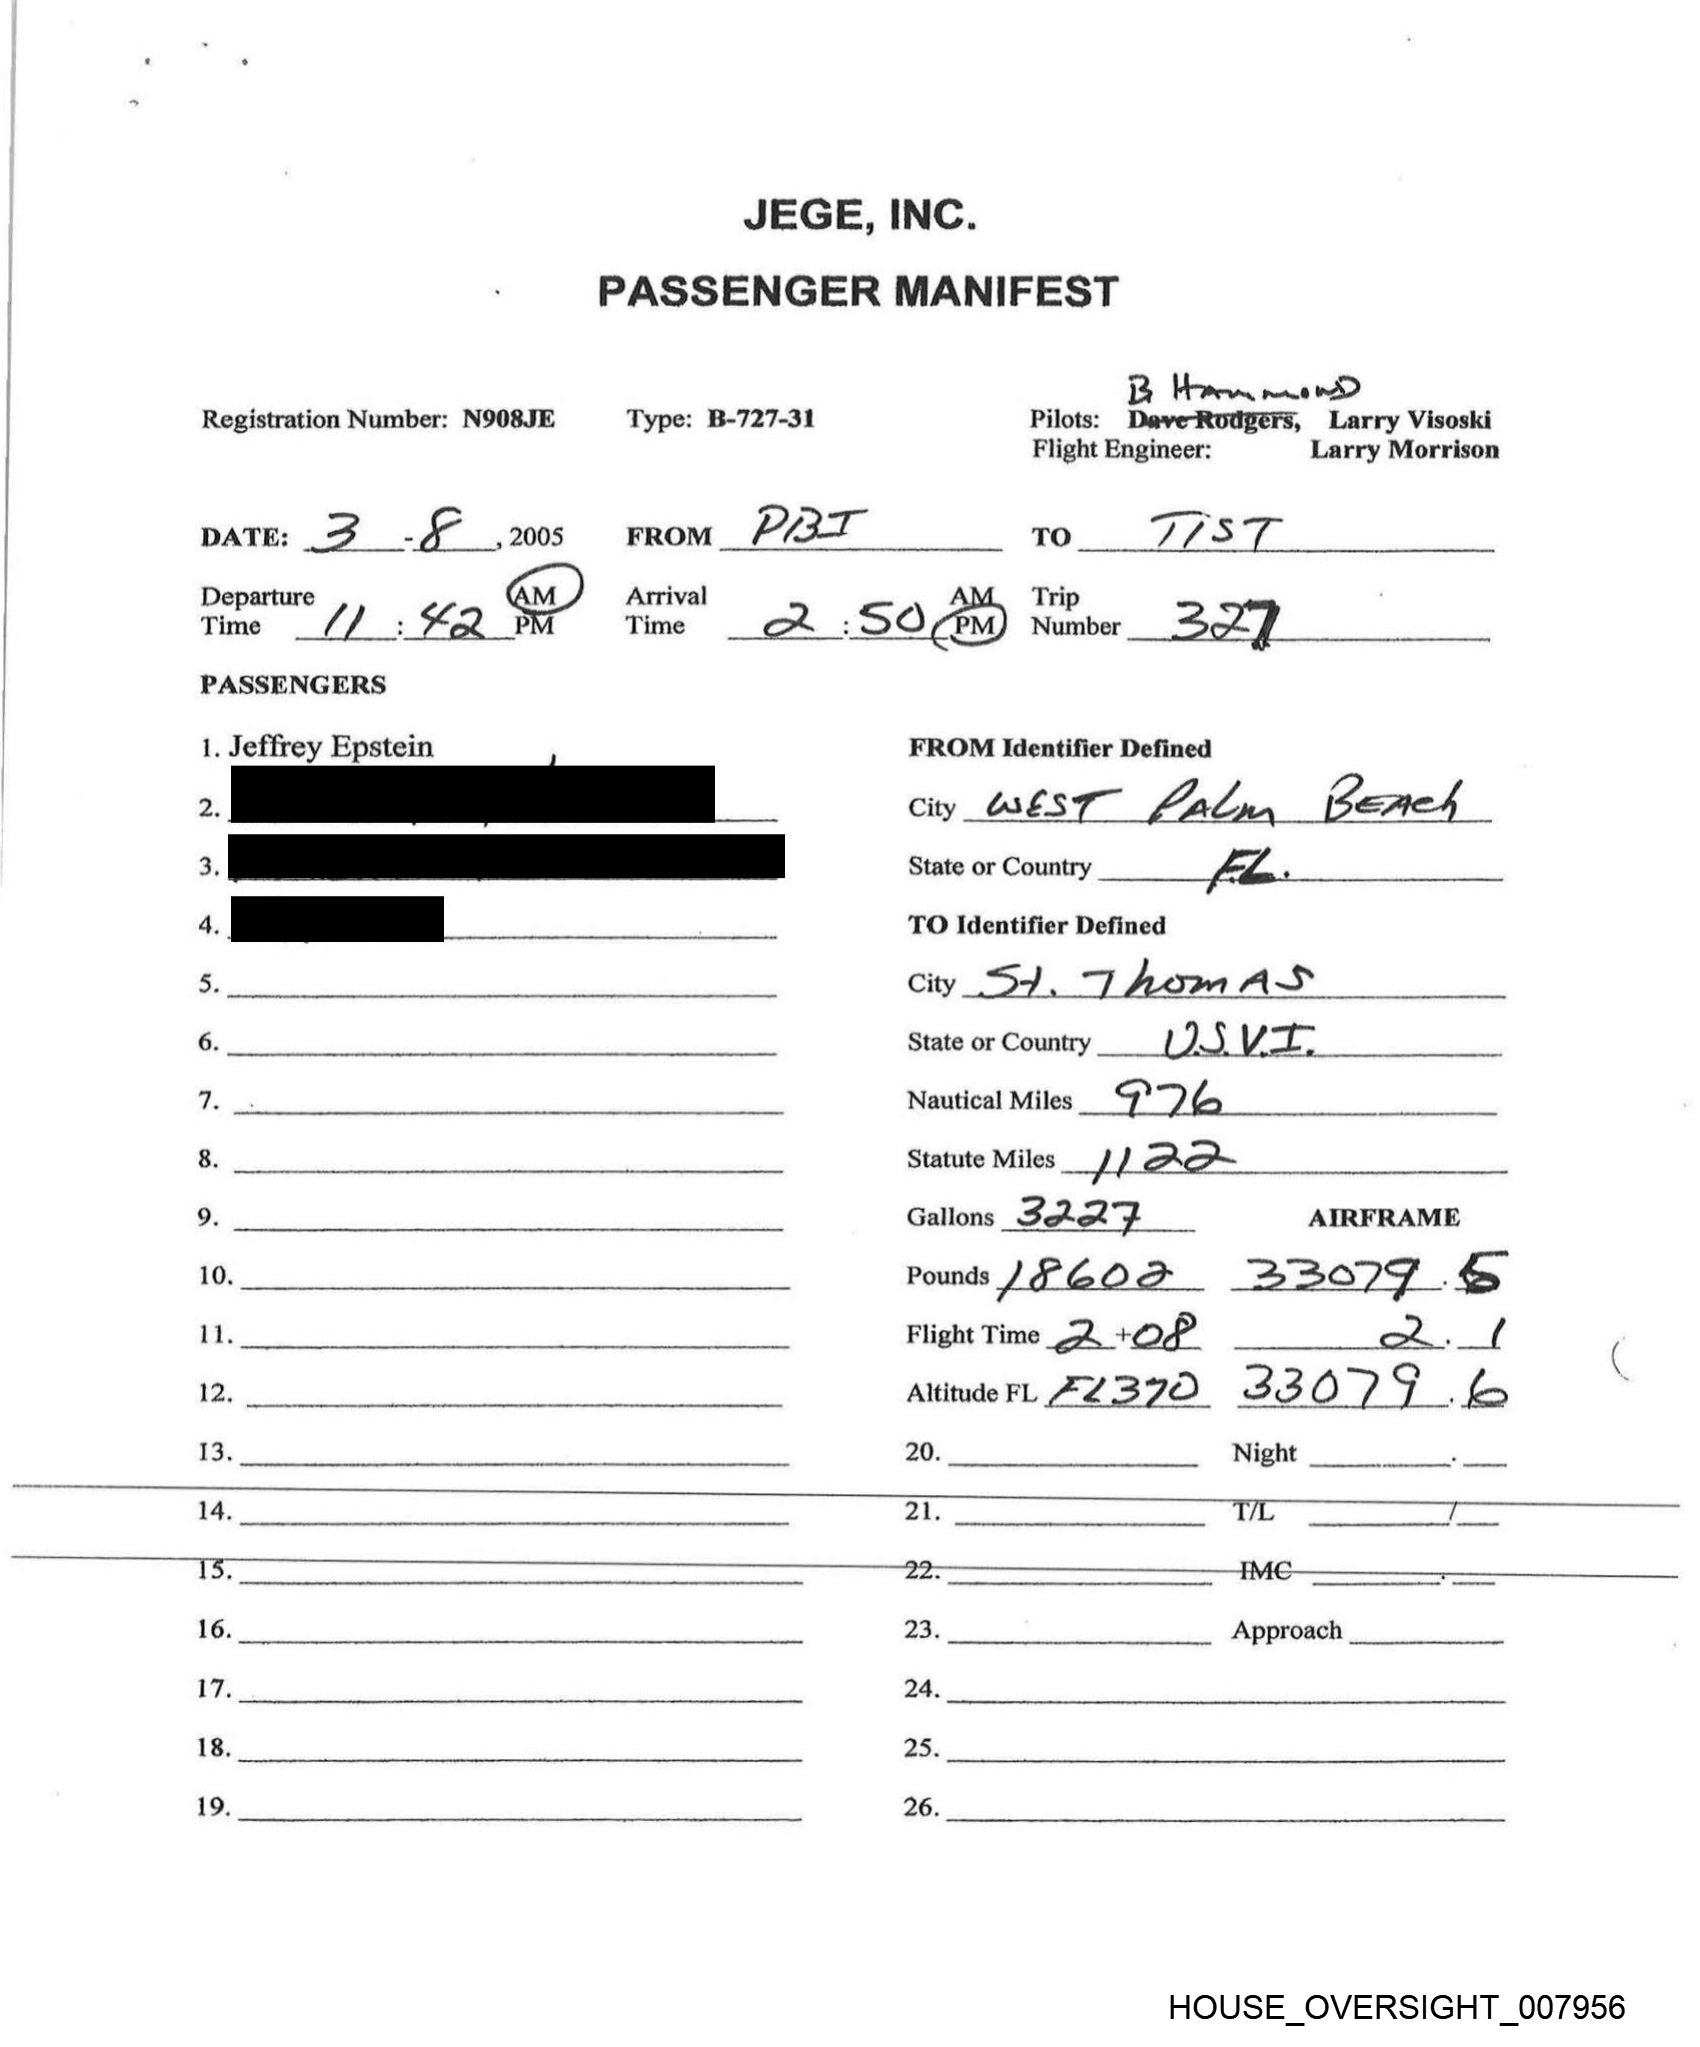 JEGE, INC.
PASSENGER MANIFEST
B Hammond
Registration Number: N908JE Type: B-727-31 Pilots: Dave Rodgers, Larry Visoski
Flight Engineer: Larry Morrison
DATE: 3 - 8, 2005 FROM PBI TO TIST
Departure Time 11 : 42 AM PM Arrival Time 2 : 50 AM PM Trip Number 327
PASSENGERS
1. Jeffrey Epstein FROM Identifier Defined
2. City WEST PALm BEACh
3. State or Country FL.
4. TO Identifier Defined
5. City St. ThomAS
6. State or Country U.S.V.I.
7. Nautical Miles 976
8. Statute Miles 1122
9. Gallons 3227 AIRFRAME
10. Pounds 18602 33079.5
11. Flight Time 2 +08 2.1
12. Altitude FL FL370 33079.6
13. 20. Night .
14. 21. T/L /
15. 22. IMC .
16. 23. Approach
17. 24.
18. 25.
19. 26.
HOUSE_OVERSIGHT_007956